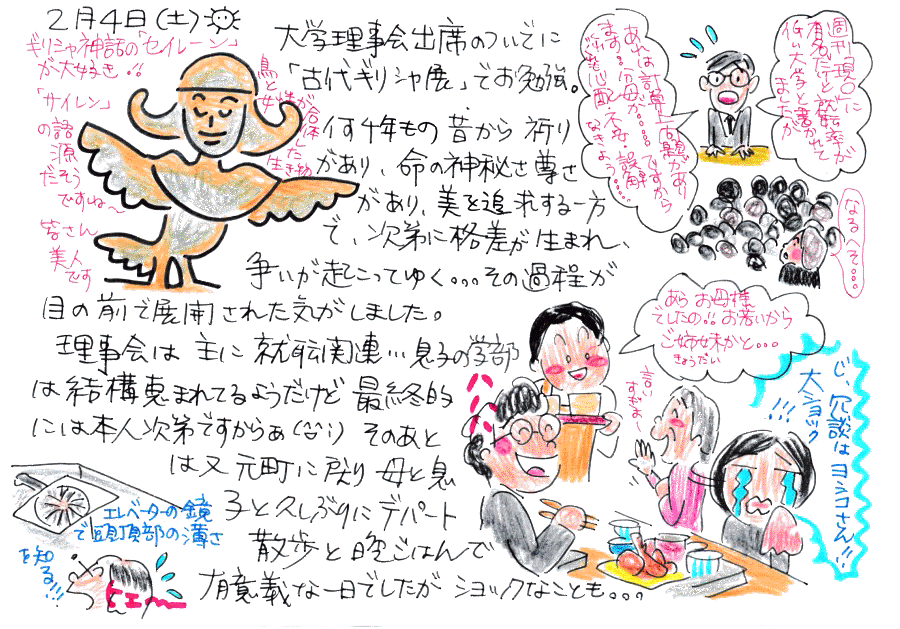 2月4日(土)
ギリシャ神話の「セイレーン」
が大好き!!
鳥と
女性が
合体した
生き物
「サイレン」
の語
源
だそう
ですね〜
皆さん
美人
です
大学理事会出席のついでに
「古代ギリシャ展」でお勉強。
何千年もの昔から祈り
があり、命の神秘さ尊さ
があり、美を追求する一方
で、次第に格差が生まれ、
争いが起こってゆく。。。その過程が
目の前で展開された気がしました。
週刊現〇に
有名だけど就転率が
低い大学と書かれて
ました
あれは計算上問題があり
ます。分母が....ですから
ご心配なさらぬよう....
なるへそ...
理事会は主に就転関連…息子の学部
は結構恵まれてるようだけど最終的
には本人次第ですからぁ(笑)そのあと
は又元町に戻り母と息
子と久しぶりにデパート
散歩と晩ごはんで
有意義な一日でしたがショックなことも。。。
あらお母様
でしたの!!お若いから
ご姉妹かと。。。
きょうだい
言い
すぎよ〜
じ、冗談はヨシコさん!!
大ショック
!!!
エレベーターの鏡
で頭頂部の薄さ
を知る!!!